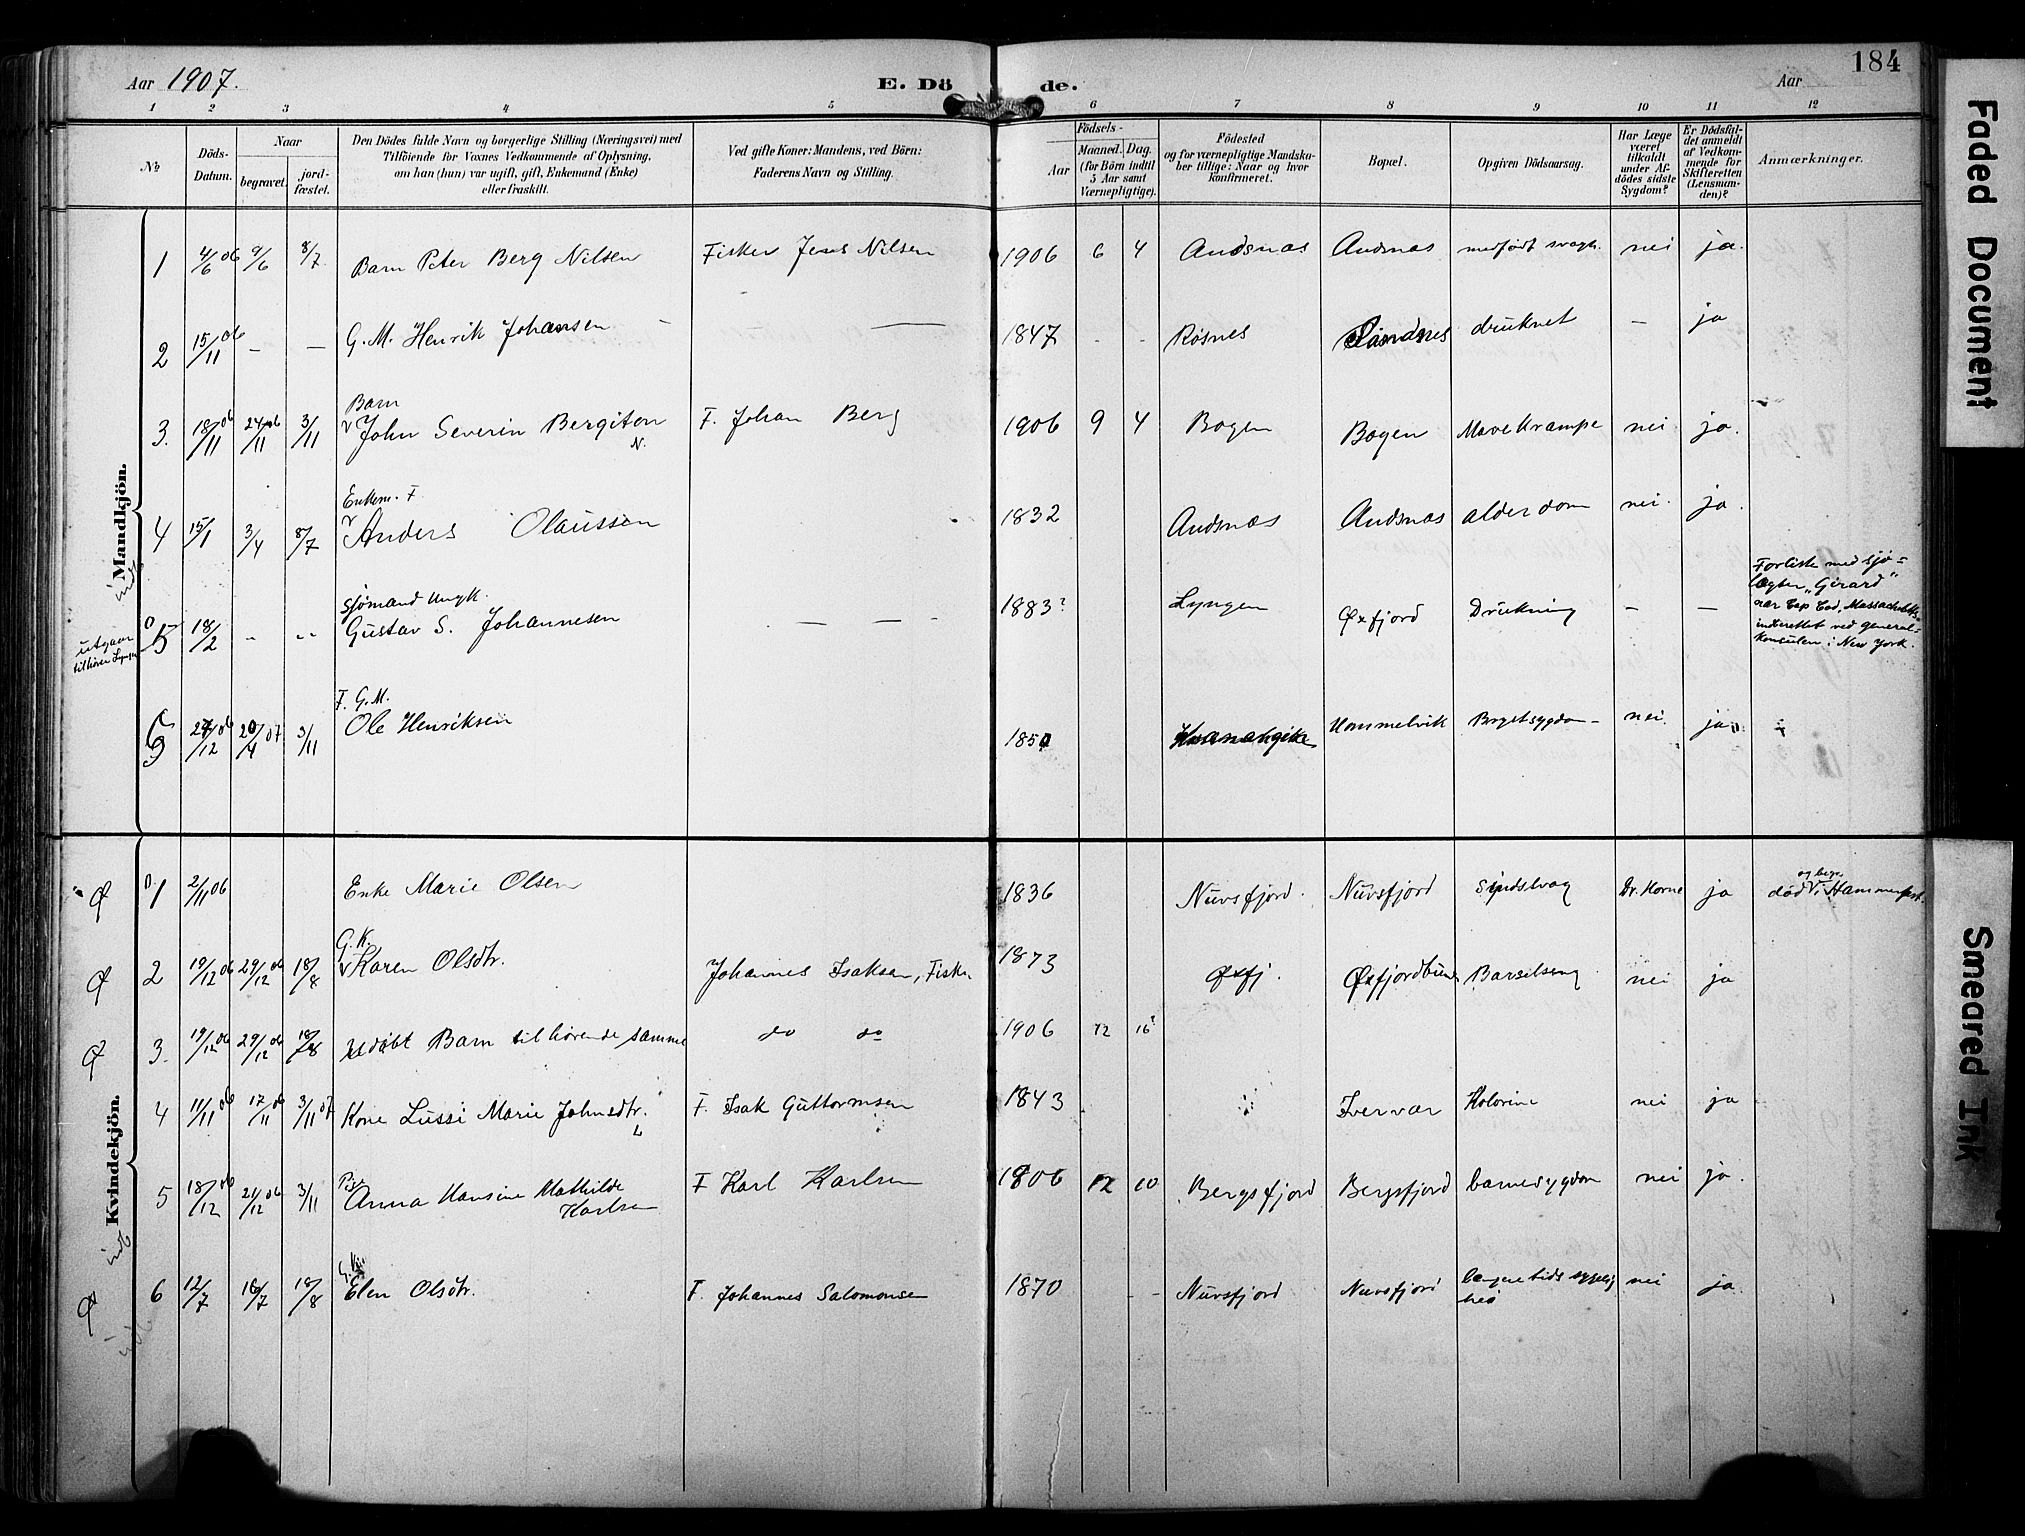 Aar 1907.
E. Dö de.
Aar
184
1 2 3 4 5 6 7 8 9 10 11 12
No
Döds-Datum.
Naar
begravet.
jord-fæstet.
Den Dödes fulde Navn og borgerlige Stilling (Næringsvei) med
Tilföiende for Voxnes Vedkommende af Oplysning,
om han (hun) var ugift, gift, Enkemand (Enke)
eller fraskilt.
Ved gifte Koner: Mandens, ved Börn:
Faderens Navn og Stilling.
Födsels-
Aar
Maaned. Dag.
(for Börn indtil
5 Aar samt
Værnepligtige).
Födested
og for værnepligtige Mandska-
ber tillige: Naar og hvor
konfirmeret.
Bopæl.
Opgiven Dödsaarsag.
Har Læge
været
tilkaldt
under Af-
dödes sidste
Sygdom?
Er Dödsfal-
det anmeldt
af Vedkom-
mende for
Skifteretten
(Lensman-
den)?
Anmærkninger.
Mandkjön.
1 4/6 06 9/6 8/7 Barn Peter Berg Nilsen Fisker Jens Nilsen 1906 6 4 Andsnæs Andsnæs medfødt svagh. nei ja.
2 15/11 06 - - G. M. Henrik Johansen — 1847 - - Røsnes Sandnes druknet - ja
Barn
3. 18/11 06 24/11 06 3/11 John Severin Bergiton N. F. Johan Berg 1906 9 4 Bogen Bogen Mavekrampe nei ja.
Enkem. F
4 15/1 3/4 8/7 Anders Olaussen 1832 Andsnæs Andsnæs alderdom nei ja.
Sjømand Ungk.
utgaar
tilhører Lyngen
5 18/2 - - Gustav S. Johannesen — — 1883? Lyngen Øxfjord Drukning - -
Forliste med sjø-
lægter „Girard"
nær Cap Cod, Massachusetts
indberettet ved general-
konsulen i New York.
F. G. M.
6 27/12 06 20/4 07 3/11 Ole Henriksen 1850 Kvænangen Hommelvik Brystsygdom nei. ja
Kvindekjön.
Ø 1 2/11 06 Enke Marie Olsen 1836 Nuvsfjord. Nuvsfjord Sindslvag Dr. Horne ja død og begr. i Hammerfest.
G. K.
Ø 2 19/12 06 29/12 06 18/8 Karen Olsdtr. Johannes Isaksen, Fisker 1873 Øxfj. Øxfjordbund Barselseng nei ja
Ø 3. 19/12 06 29/12 06 18/8 udøbt Barn tilhørende samme do do 1906 12 16?
4 11/11 06 17/11 06 3/11 07 Kone Lussi Marie Johnsdtr. L F. Isak Guttormsen 1843 Ivervær Kolerine nei ja
5 18/12 06 21/12 06 3/11 Anna Hansine Mathilde
Karlsen F Karl Karlsen 1906 12 10 Bergsfjord Bergsfjord barnesygdom nei ja.
Ø 6 12/7 16/7 18/8 Elen Olsdtr. F. Johannes Salomonsen 1870 - - Nuvsfjord Nuvsfjord længere tids sygelig
hed nei ja.
Faded Document
Smeared Ink